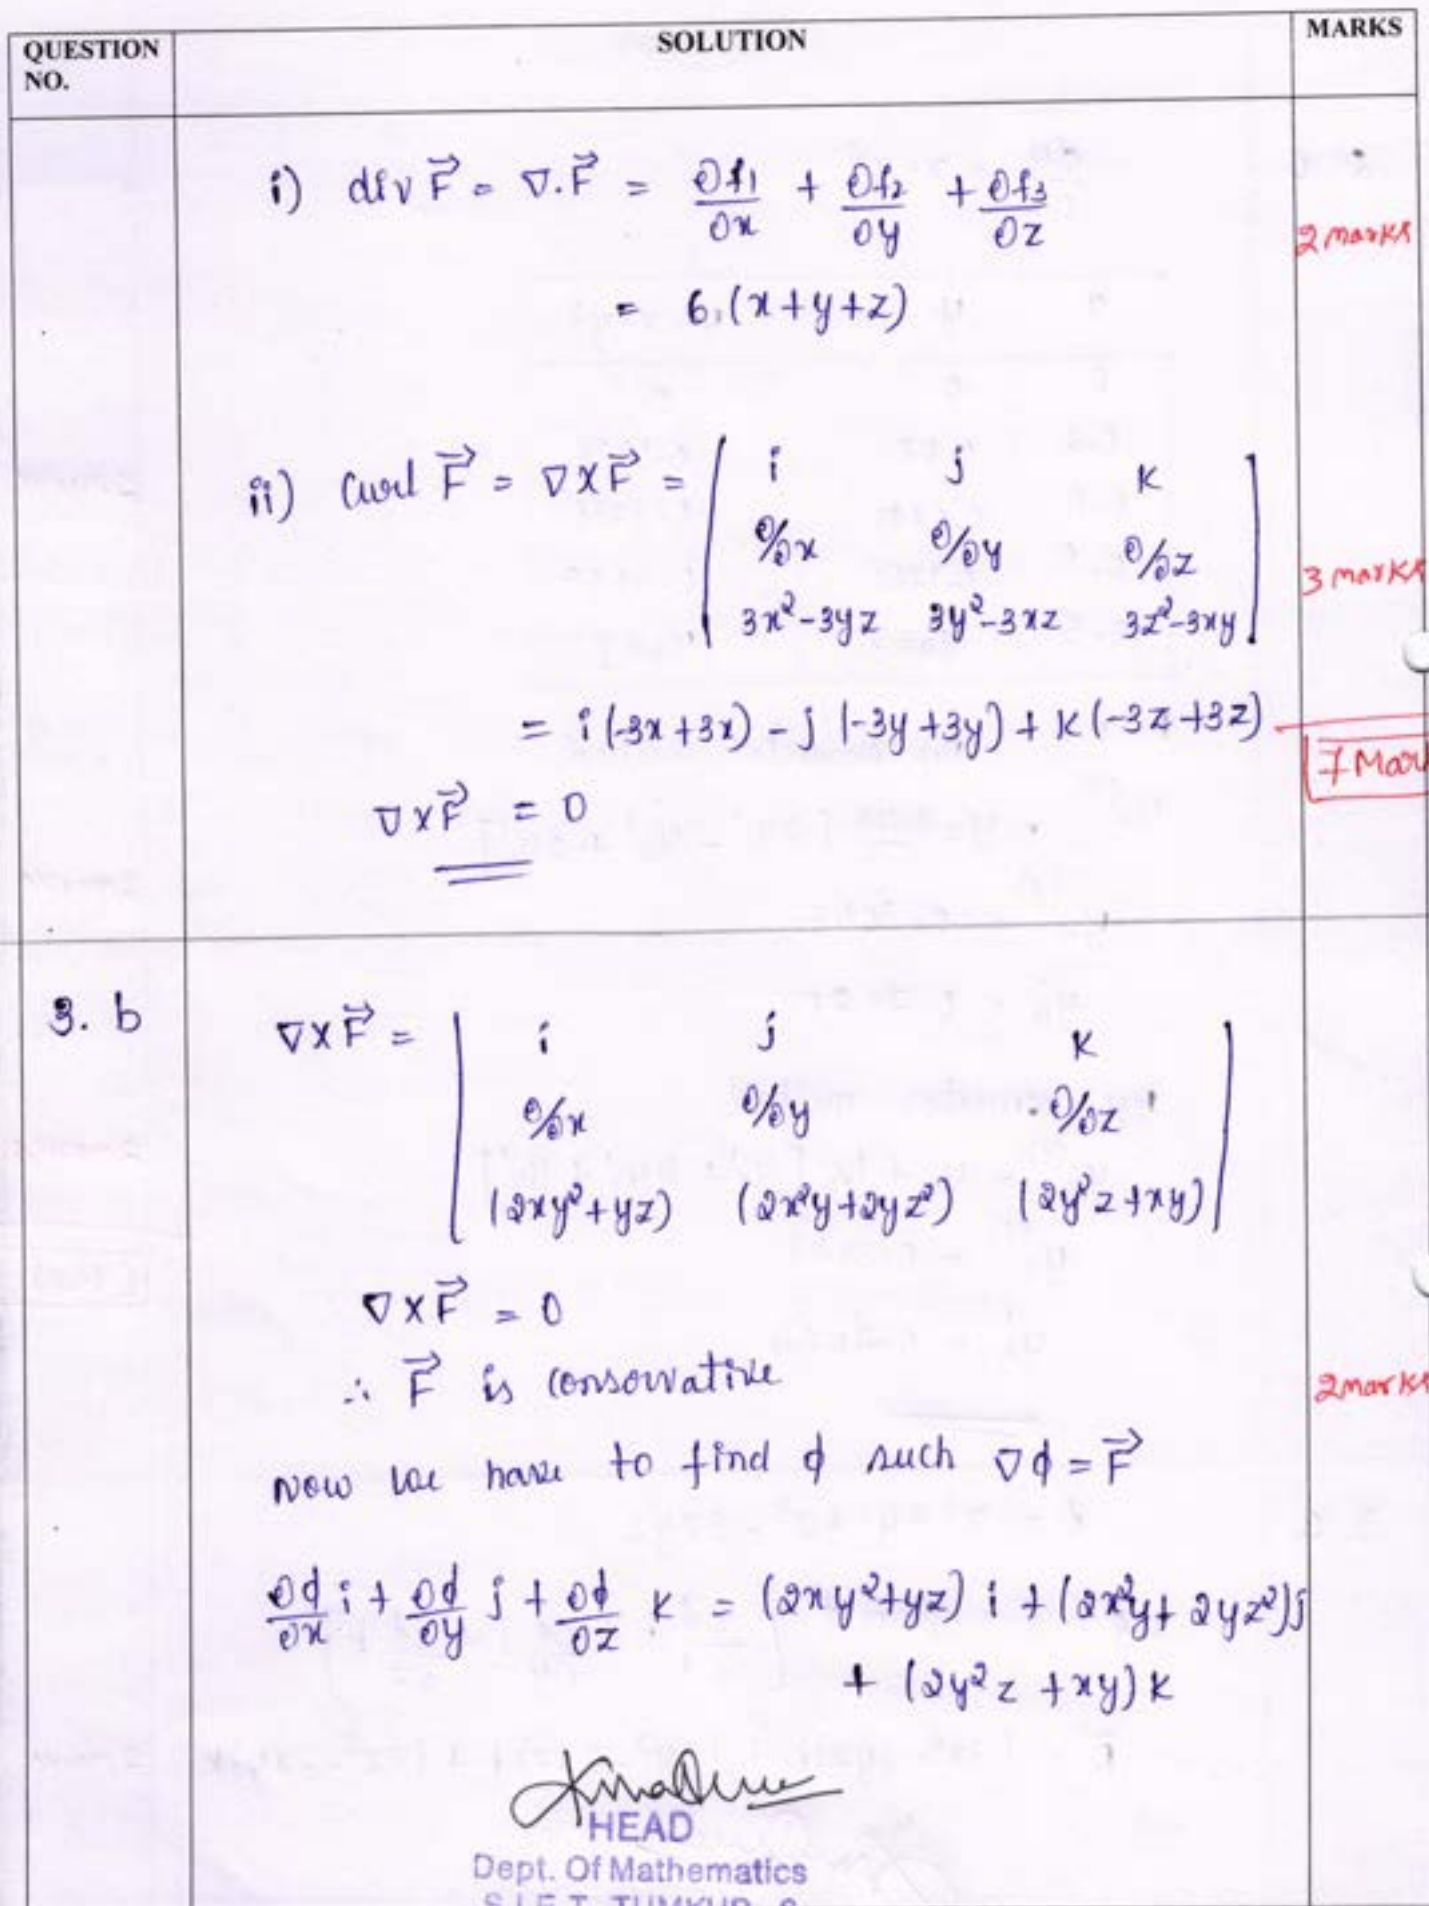 QUESTION NO.
SOLUTION
MARKS
i) div F⃗ = ∇.F⃗ = ∂f1/∂x + ∂f2/∂y + ∂f3/∂z
2 marks
= 6.(x+y+z)
ii) Curl F⃗ = ∇×F⃗ = | i j k
∂/∂x ∂/∂y ∂/∂z
3 marks
3x²-3yz 3y²-3xz 3z²-3xy |
= i(-3x+3x) - j(-3y+3y) + k(-3z+3z)
7 Mark
∇×F⃗ = 0
3. b
∇×F⃗ = | i j k
∂/∂x ∂/∂y ∂/∂z
(2xy²+yz) (2x²y+2yz²) (2y²z+xy) |
∇×F⃗ = 0
∴ F⃗ is conservative
2 marks
now we have to find ϕ such ∇ϕ = F⃗
∂ϕ/∂x i + ∂ϕ/∂y j + ∂ϕ/∂z k = (2xy²+yz) i + (2x²y+2yz²)j
+ (2y²z+xy)k
HEAD
Dept. Of Mathematics